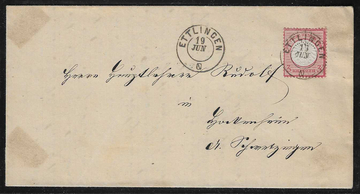 ETTLINGEN
19
JUN
ETTLINGEN
19
JUN
Herrn Hauptlehrer Rudolf
in
Hockenheim
A. Schwetzingen